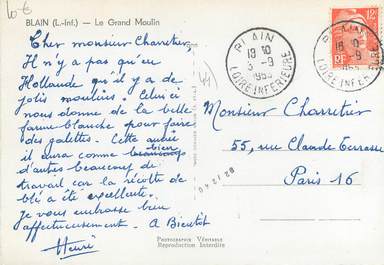 10 €
BLAIN (L.-Inf.) — Le Grand Moulin
Cher monsieur Charretier,
Il n'y a pas qu'en
Hollande qu'il y a de
jolis moulins. Celui ci
nous donne de la belle
farine blanche pour faire
des galettes. Cette année
il aura comme bien
d'autres beaucoup de
travail car la récolte de
blé a été excellente.
Je vous embrasse bien
affectueusement. A Bientôt
Henri
BLAIN
18 10
3 -9
1953
LOIRE INFERIEURE
12F
RF
BLAIN
18 10
-9
1953
LOIRE INFER
44
Monsieur Charretier
55, rue Claude Terrasse
Paris 16
021240
PHOTOGRAPHIE VÉRITABLE
Reproduction Interdite